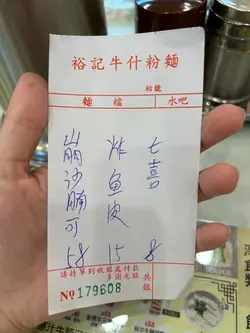 裕記牛什粉麵
枱號
麵檔
水吧
崩沙腩可
58
炸魚皮
15
七喜
8
請持單到收銀處付款
多謝光臨
共銀
No 179608